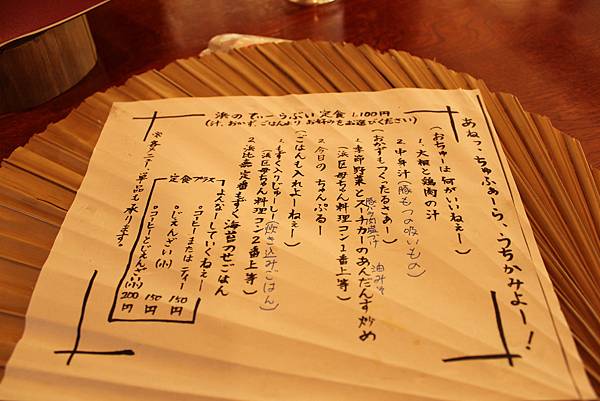 あねっ、ちゅふぁーら、うちかみよー!
浜のてぃーらぶい定食 1,100円
(汁、おかず、ごはんより お好みをお選びください)
(おちゅーは 何がいいねぇー)
1. 大根と鶏肉の汁
2. 中身汁(豚もつの吸いもの)
(おかずも つくたるさぁー)
1. 季節野菜とスーチカーのあんだんすー炒め
豚バラ肉塩づけ
油みそ
(浜区母ちゃん料理コン1番上等)
2. 今日の ちゃんぷるー
(ごはんも入れよーねぇー)
1. もずく入りじゅーしー(炊き込みごはん)
(浜区母ちゃん料理コン2番上等)
2. 浜比嘉定番もずく海苔のせごはん
定食プラス
んなぁーしていくねぇー
○コーヒーまたは ティー 150円
○じぇんざい(小) 150円
○コーヒーとじぇんざい(小) 200円
単品も承ります。